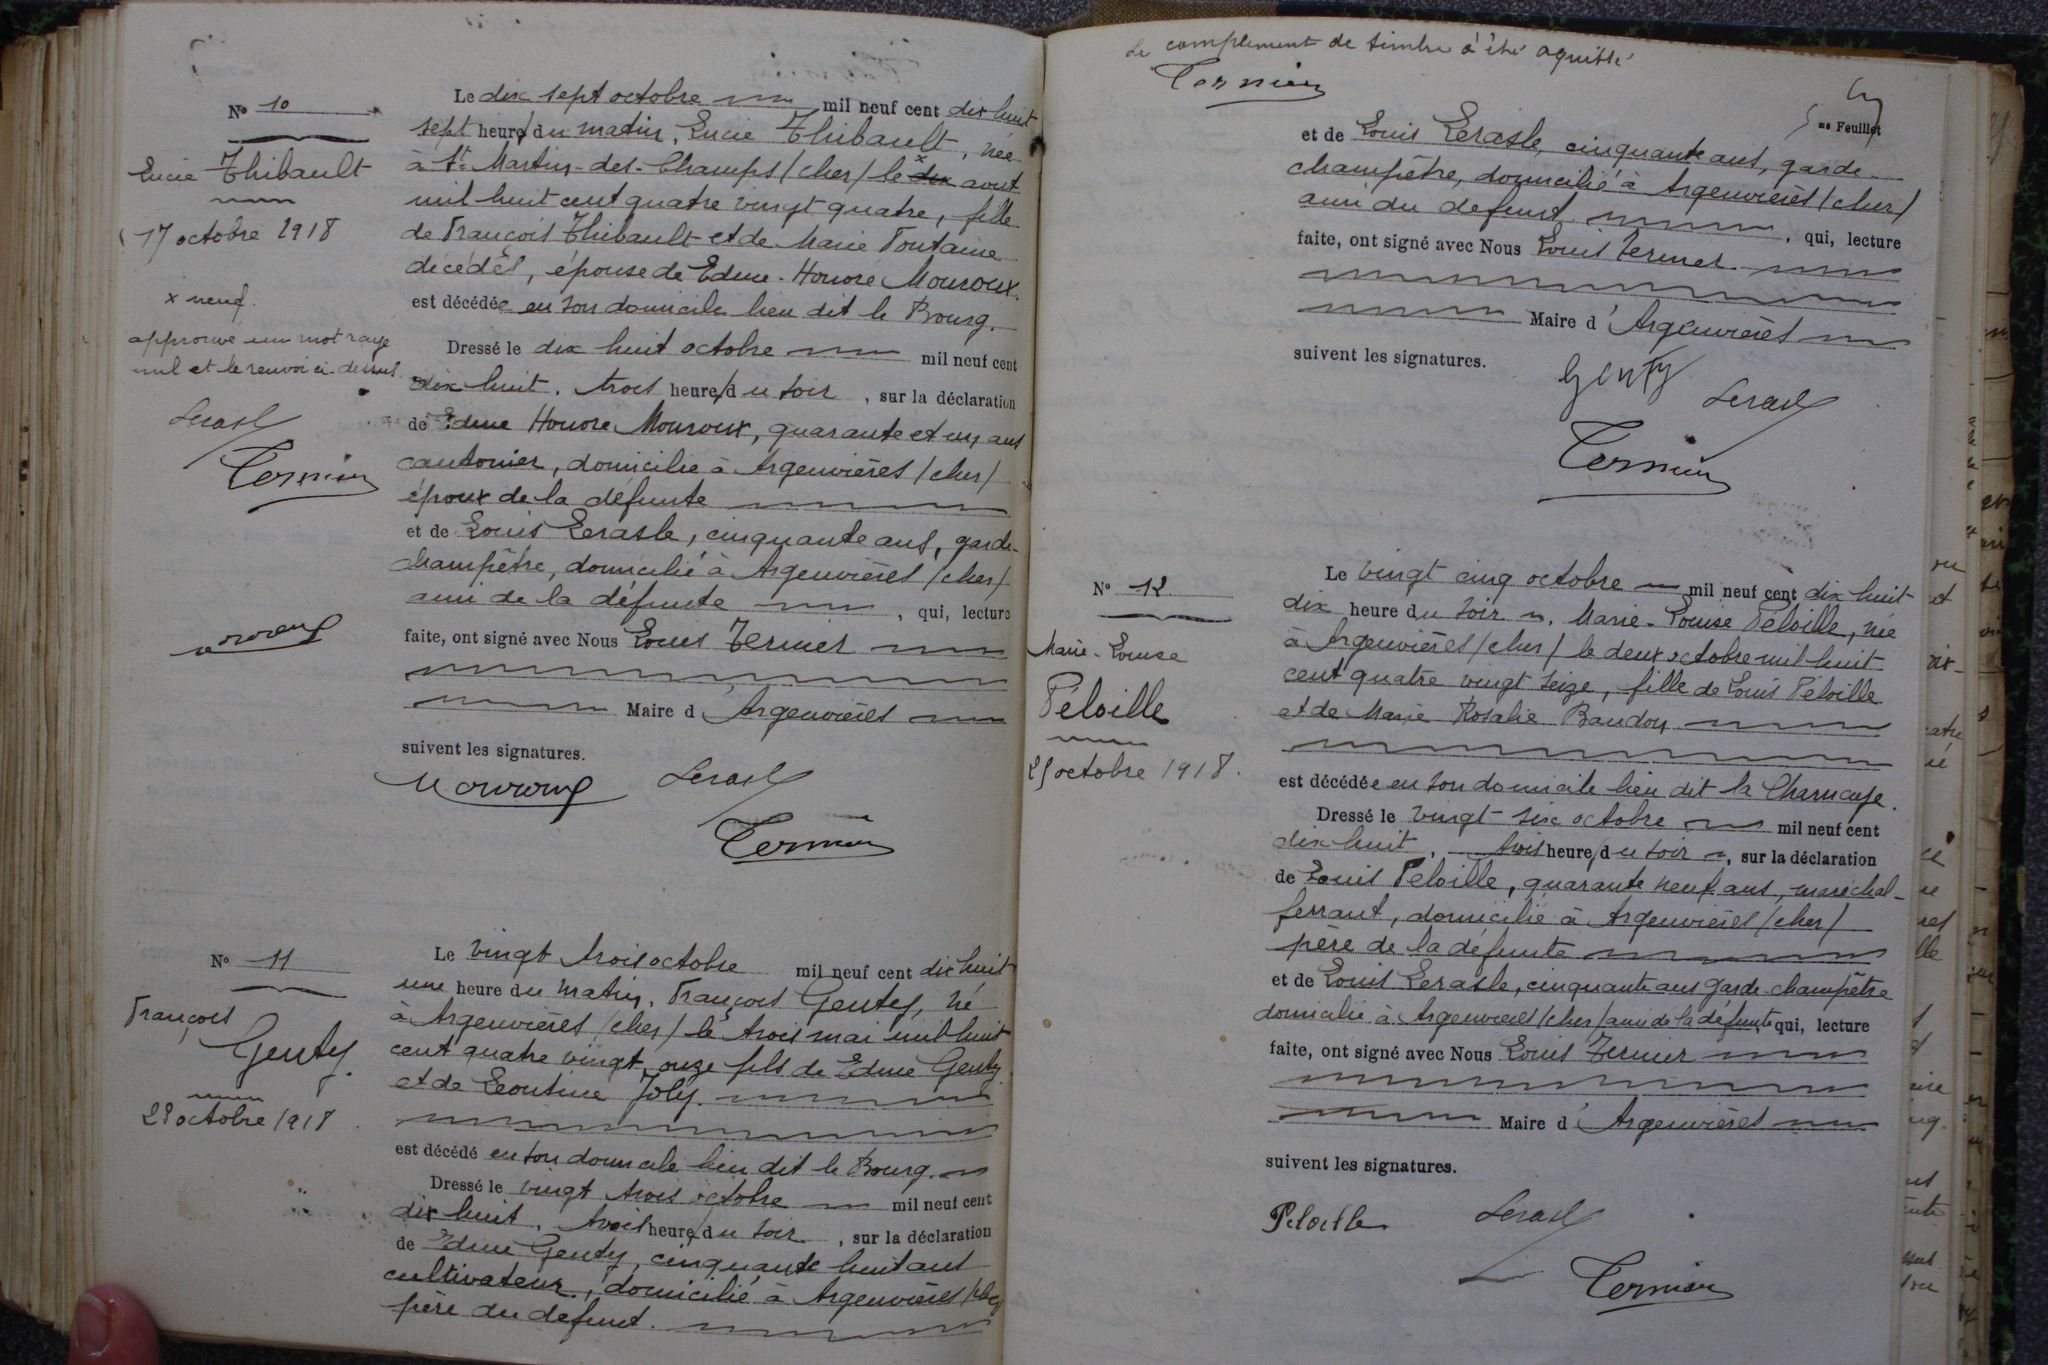 Nº 10
Lucie Thibault
17 octobre 1918
x neuf.
approuvé un mot rayé
nul et le renvoi ci-dessus
Lerasle
Ternier
Mouroux
Le dix sept octobre mil neuf cent dix huit
sept heure du matin, Lucie Thibault, née
à St Martin-des-Champs (cher) le x dix aout
mil huit cent quatre vingt quatre, fille
de François Thibault et de Marie Fontaine
décédés, épouse de Edme-Honoré Mouroux.
est décédée en son domicile lieu dit le Bourg.
Dressé le dix huit octobre mil neuf cent
dix huit, trois heure du soir, sur la déclaration
de Edme Honoré Mouroux, quarante et un ans
cantonier, domicilié à Argenvières (cher)
époux de la défunte
et de Louis Lerasle, cinquante ans, garde-
champêtre, domicilié à Argenvières (cher)
ami de la défunte, qui, lecture
faite, ont signé avec Nous Louis Ternier
Maire d'Argenvières
suivent les signatures.
Mouroux Lerasle
Ternier
Nº 11
François
Genty.
23 octobre 1918
Le vingt trois octobre mil neuf cent dix huit
une heure du matin, François Genty, né
à Argenvières (cher) le trois mai mil huit
cent quatre vingt onze fils de Edme Genty
et de Leontine Joly.
est décédé en son domicile lieu dit le Bourg.
Dressé le vingt trois octobre mil neuf cent
dix huit, trois heure du soir, sur la déclaration
de Edme Genty, cinquante huit ans
cultivateur, domicilié à Argenvières (cher)
père du défunt.
Le complement de timbre à été aquitté
Ternier
5 me Feuillet
et de Louis Lerasle, cinquante ans, garde-
champêtre, domicilié à Argenvières (cher)
ami du defunt, qui, lecture
faite, ont signé avec Nous Louis Ternier
Maire d'Argenvières
suivent les signatures.
Genty Lerasle
Ternier
Nº 12
Marie-Louise
Péloille
25 octobre 1918.
Le vingt cinq octobre mil neuf cent dix huit
dix heure du soir, Marie-Louise Péloille, née
à Argenvières (cher) le deux octobre mil huit
cent quatre vingt seize, fille de Louis Péloille
et de Marie Rosalie Baudon
est décédée en son domicile lieu dit la Charnaye.
Dressé le vingt-six octobre mil neuf cent
dix huit, trois heure du soir, sur la déclaration
de Louis Péloille, quarante neuf ans, maréchal-
ferrant, domicilié à Argenvières (cher)
père de la défunte
et de Louis Lerasle, cinquante ans garde-champêtre
domicilié à Argenvières (cher) ami de la défunte qui, lecture
faite, ont signé avec Nous Louis Ternier
Maire d'Argenvières
suivent les signatures.
Peloille Lerasle
Ternier